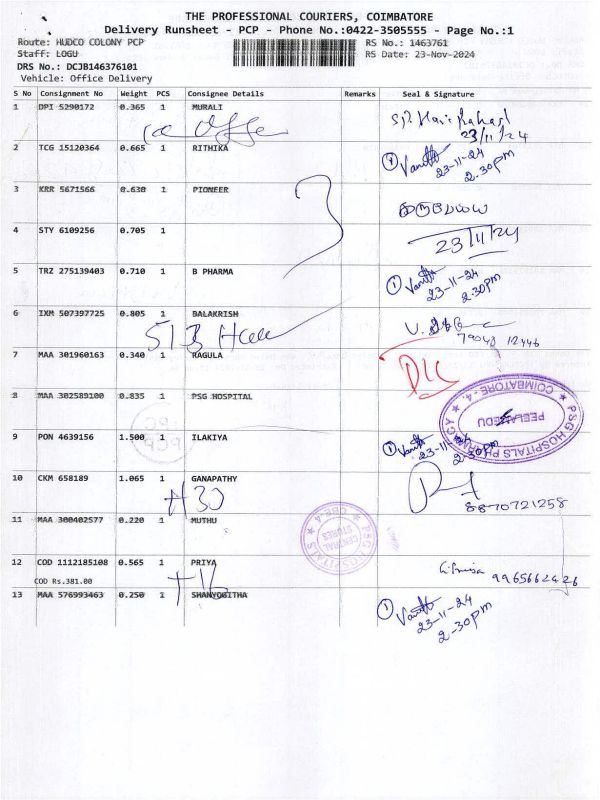 THE PROFESSIONAL COURIERS, COIMBATORE
Delivery Runsheet - PCP - Phone No.:0422-3505555 - Page No.:1
Route: HUDCO COLONY PCP RS No.: 1463761
Staff: LOGU RS Date: 23-Nov-2024
DRS No.: DCJB146376101
Vehicle: Office Delivery
S No Consignment No Weight PCS Consignee Details Remarks Seal & Signature
1 DPI 5290172 0.365 1 MURALI
23/11/24
2 TCG 15120364 0.665 1 RITHIKA
1 23-11-24
2.30pm
3 KRR 5671566 0.630 1 PIONEER
4 STY 6109256 0.705 1
23/11/24
5 TRZ 275139403 0.710 1 B PHARMA
1 23-11-24
2.30pm
6 IXM 507397725 0.805 1 BALAKRISH
513
79048 12446
7 MAA 301960163 0.340 1 RAGULA
8 MAA 302589100 0.835 1 PSG HOSPITAL
PSG HOSPITALS PHARMACY
PEELAMEDU
COIMBATORE - 4
9 PON 4639156 1.500 1 ILAKIYA
1 23-11-24
2.30pm
10 CKM 658189 1.065 1 GANAPATHY
H30
8870721258
11 MAA 300402577 0.220 1 MUTHU
PSG HOSPITALS
CENTRAL
STORES
CBE-4
12 COD 1112185108 0.565 1 PRIYA
COD Rs.381.00
9965662426
13 MAA 576993463 0.250 1 SHANYOGITHA
1 23-11-24
2-30pm